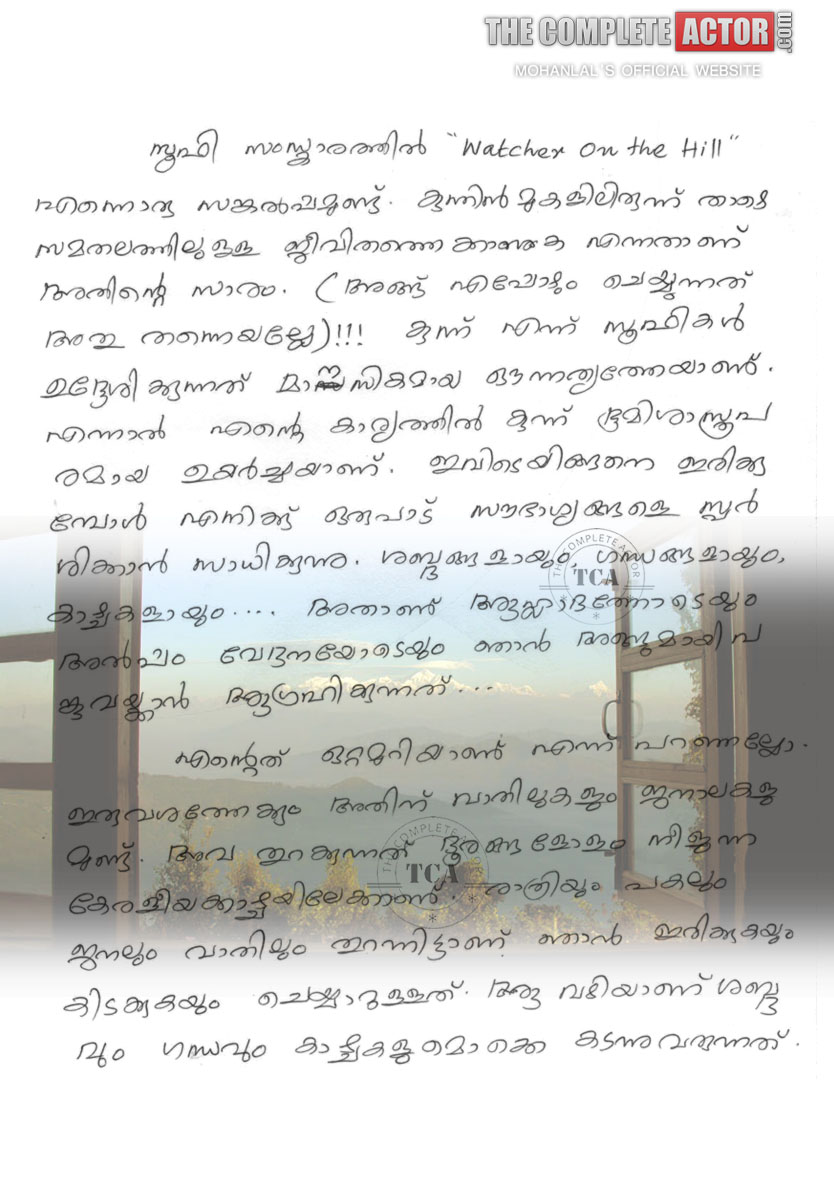 THE COMPLETE ACTOR.com
MOHANLAL'S OFFICIAL WEBSITE
സൂഫി സംസ്കാരത്തിൽ "Watcher on the Hill"
എന്നൊരു സങ്കൽപ്പമുണ്ട്. കുന്നിൻ മുകളിലിരുന്ന് താഴെ
സമതലത്തിലുള്ള ജീവിതത്തെ കാണുക എന്നതാണ്
അതിന്റെ സാരം. (അങ്ങ് എപ്പോഴും ചെയ്യുന്നത്
അതു തന്നെയല്ലേ)!!! കുന്ന് എന്ന് സൂഫികൾ
ഉദ്ദേശിക്കുന്നത് മാനസികമായ ഔന്നത്യത്തേയാണ്.
എന്നാൽ എന്റെ കാര്യത്തിൽ കുന്ന് ഭൂമിശാസ്ത്രപ
രമായ ഉയർച്ചയാണ്. ഇവിടെയിങ്ങനെ ഇരിക്കു
മ്പോൾ എനിക്ക് ഒരുപാട് സൗഭാഗ്യങ്ങളെ സ്പർ
ശിക്കാൻ സാധിക്കുന്നു. ശബ്ദങ്ങളായും, ഗന്ധങ്ങളായും,
കാഴ്ച്ചകളായും.... അതാണ് ആഹ്ലാദത്തോടെയും
അൽപ്പം വേദനയോടെയും ഞാൻ അങ്ങുമായി പ
ങ്കുവയ്ക്കാൻ ആഗ്രഹിക്കുന്നത്...
എന്റെത് ഒറ്റമുറിയാണ് എന്ന് പറഞ്ഞല്ലോ.
ഇരുവശത്തേക്കും അതിന് വാതിലുകളും ജനാലകളു
മുണ്ട്. അവ തുറക്കുന്നത് ദൂരങ്ങളോളം നീളുന്ന
കേരളീയക്കാഴ്ച്ചയിലേക്കാണ്. രാത്രിയും പകലും
ജനലും വാതിലും തുറന്നിട്ടാണ് ഞാൻ ഇരിക്കുകയും
കിടക്കുകയും ചെയ്യാറുള്ളത്. ആ വഴിയാണ് ശബ്ദ
വും ഗന്ധവും കാഴ്ച്ചകളുമൊക്കെ കടന്നുവരുന്നത്.
THE COMPLETE ACTOR
TCA
THE COMPLETE ACTOR
TCA